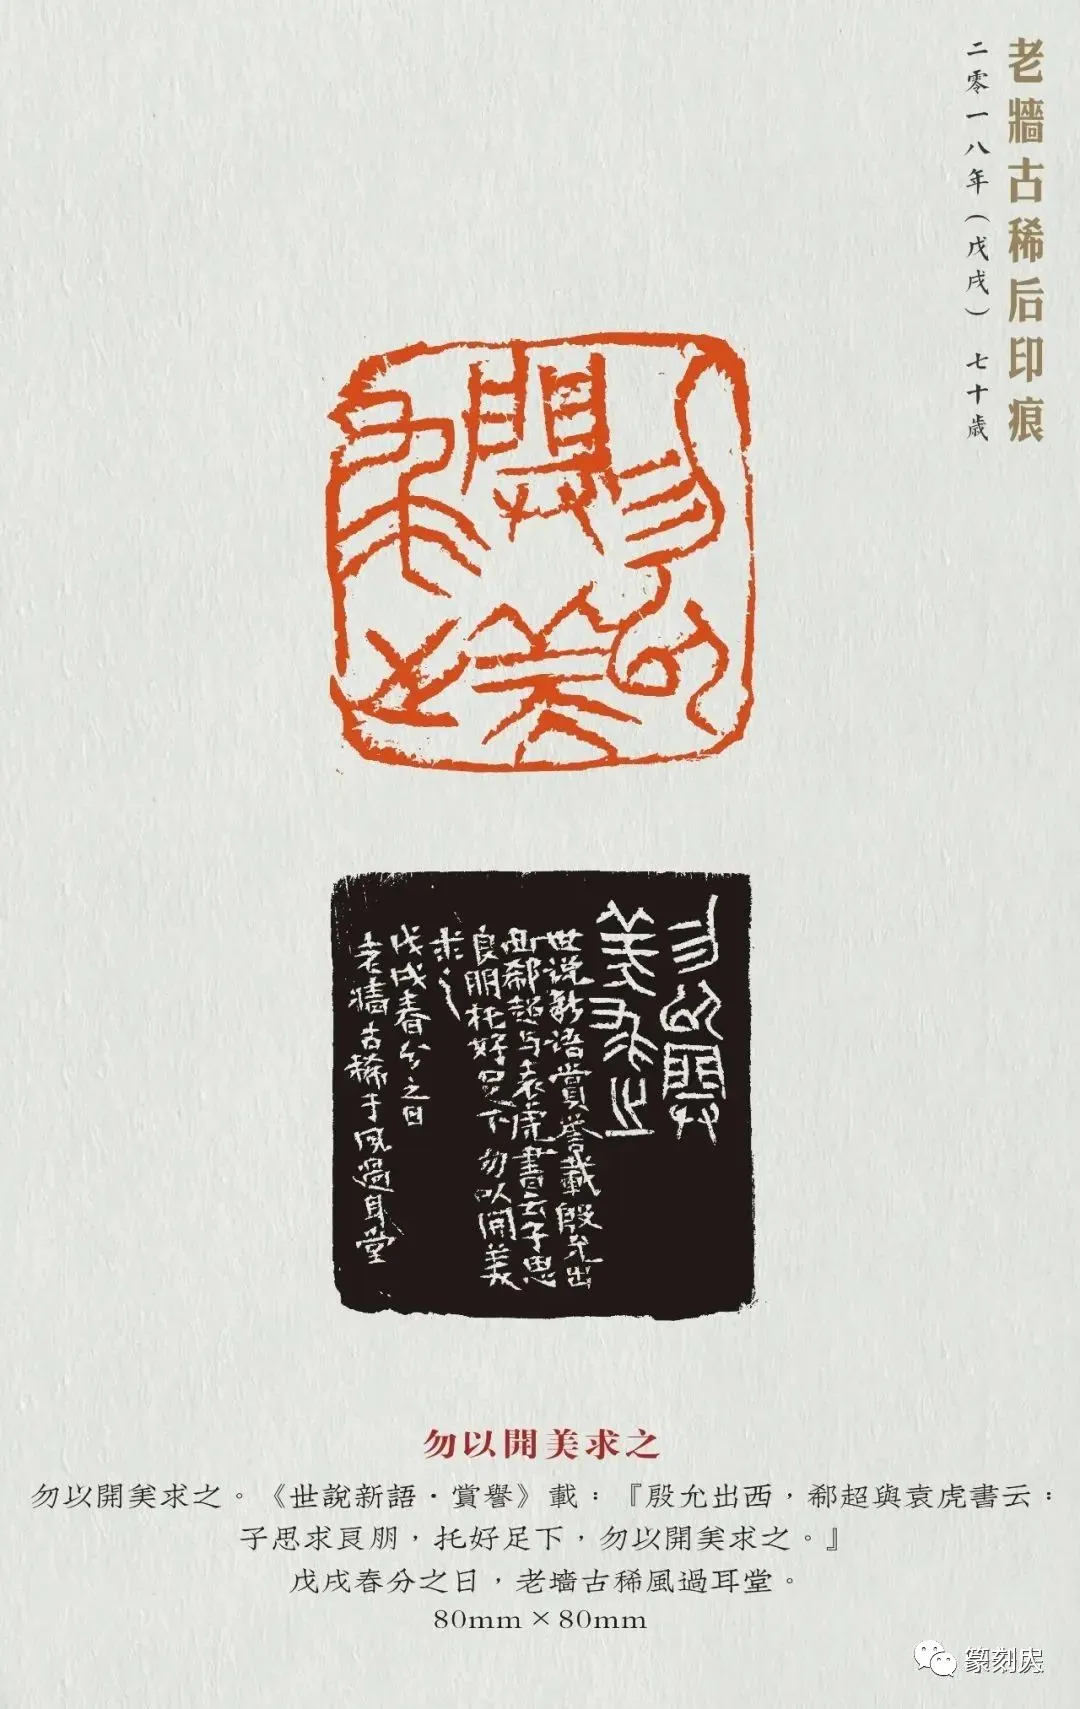 老牆古稀后印痕
二零一八年（戊戌） 七十歲
勿以
開美
求之
勿以開
美求之
世说新语賞誉載殷允出
西郗超与袁虎書云子思
良朋托好足下勿以開美
求之
戊戌春分之日
老墙古稀于风過耳堂
勿以開美求之
勿以開美求之。《世說新語·賞譽》載：『殷允出西，郗超與袁虎書云：
子思求良朋，托好足下，勿以開美求之。』
戊戌春分之日，老墻古稀風過耳堂。
80mm×80mm
篆刻